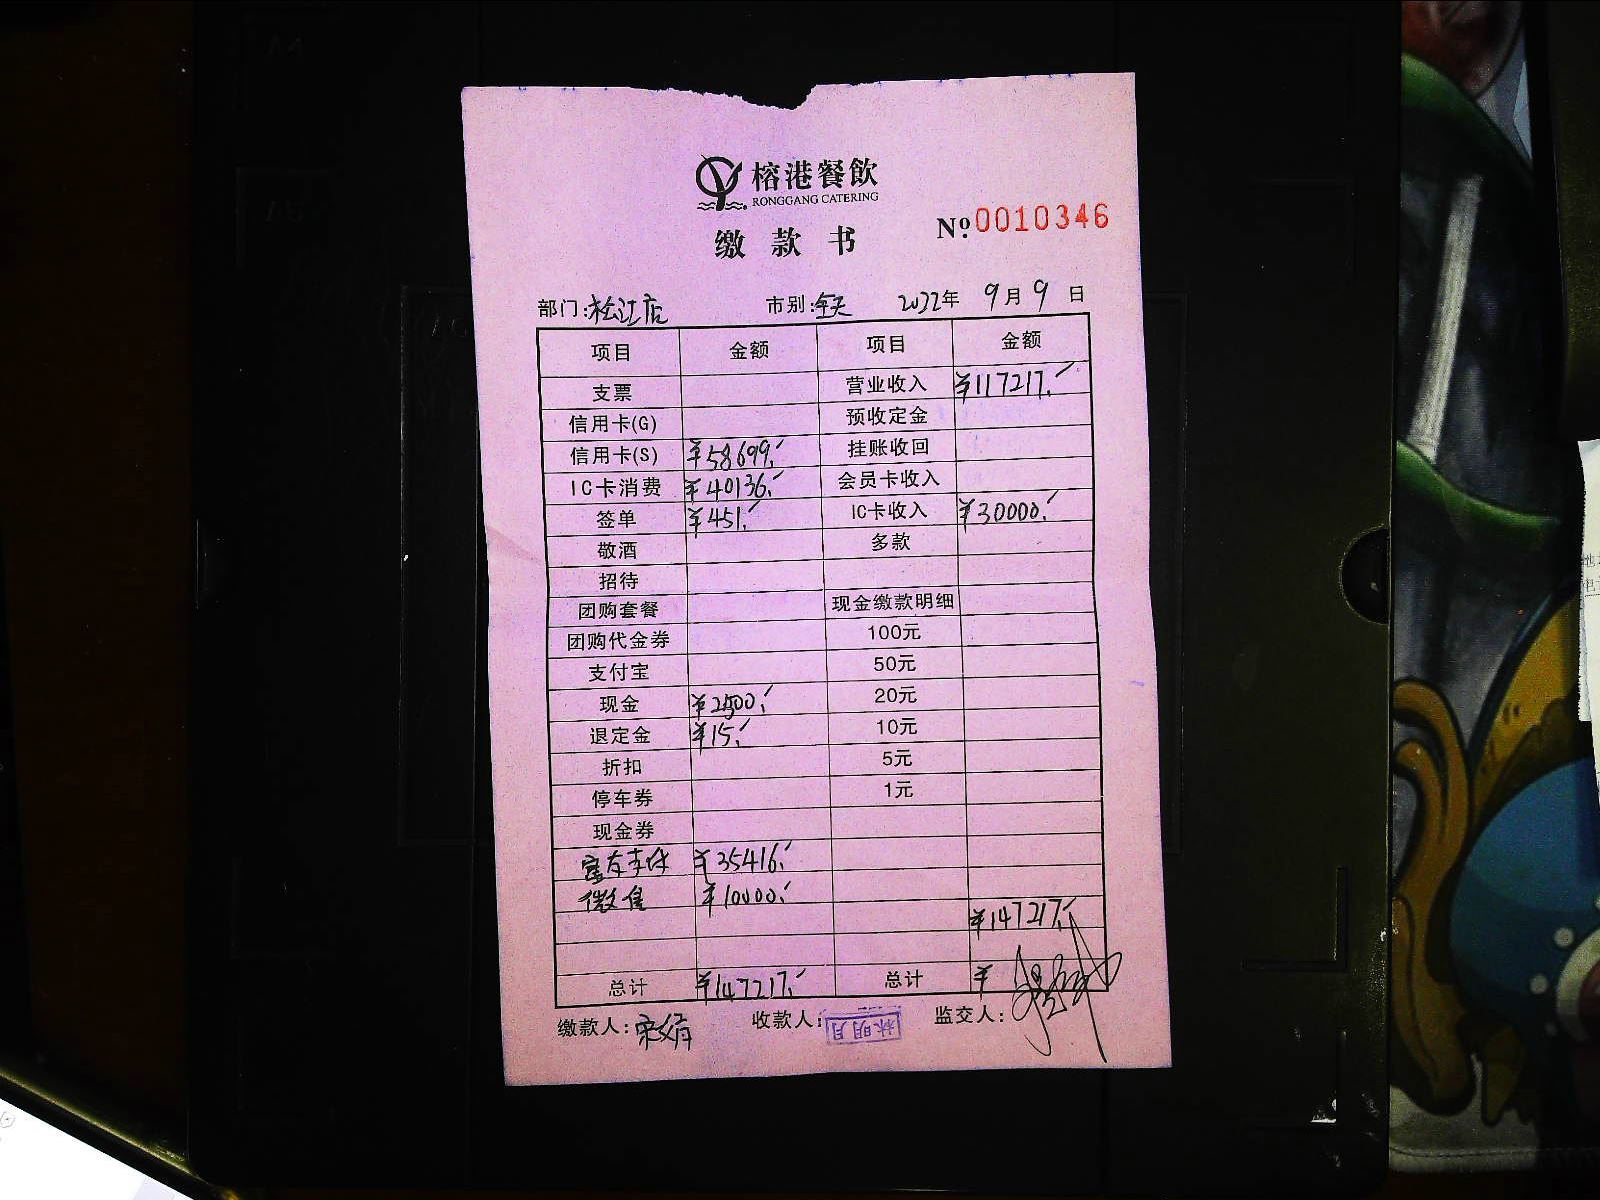 榕港餐飲
RONGGANG CATERING
缴款书
Nº 0010346
部门:松江店 市别:全天 2022年 9月 9日
项目 金额 项目 金额
支票 营业收入 ¥117217.
信用卡(G) 预收定金
信用卡(S) ¥58699. 挂账收回
IC卡消费 ¥40136. 会员卡收入
签单 ¥451. IC卡收入 ¥30000.
敬酒 多款
招待
团购套餐 现金缴款明细
团购代金券 100元
支付宝 50元
现金 ¥2500. 20元
退定金 ¥15. 10元
折扣 5元
停车券 1元
现金券
富友支付 ¥35416.
微信 ¥10000.
¥147217.
总计 ¥147217. 总计 ¥
缴款人:宋娟 收款人:林明月 监交人: